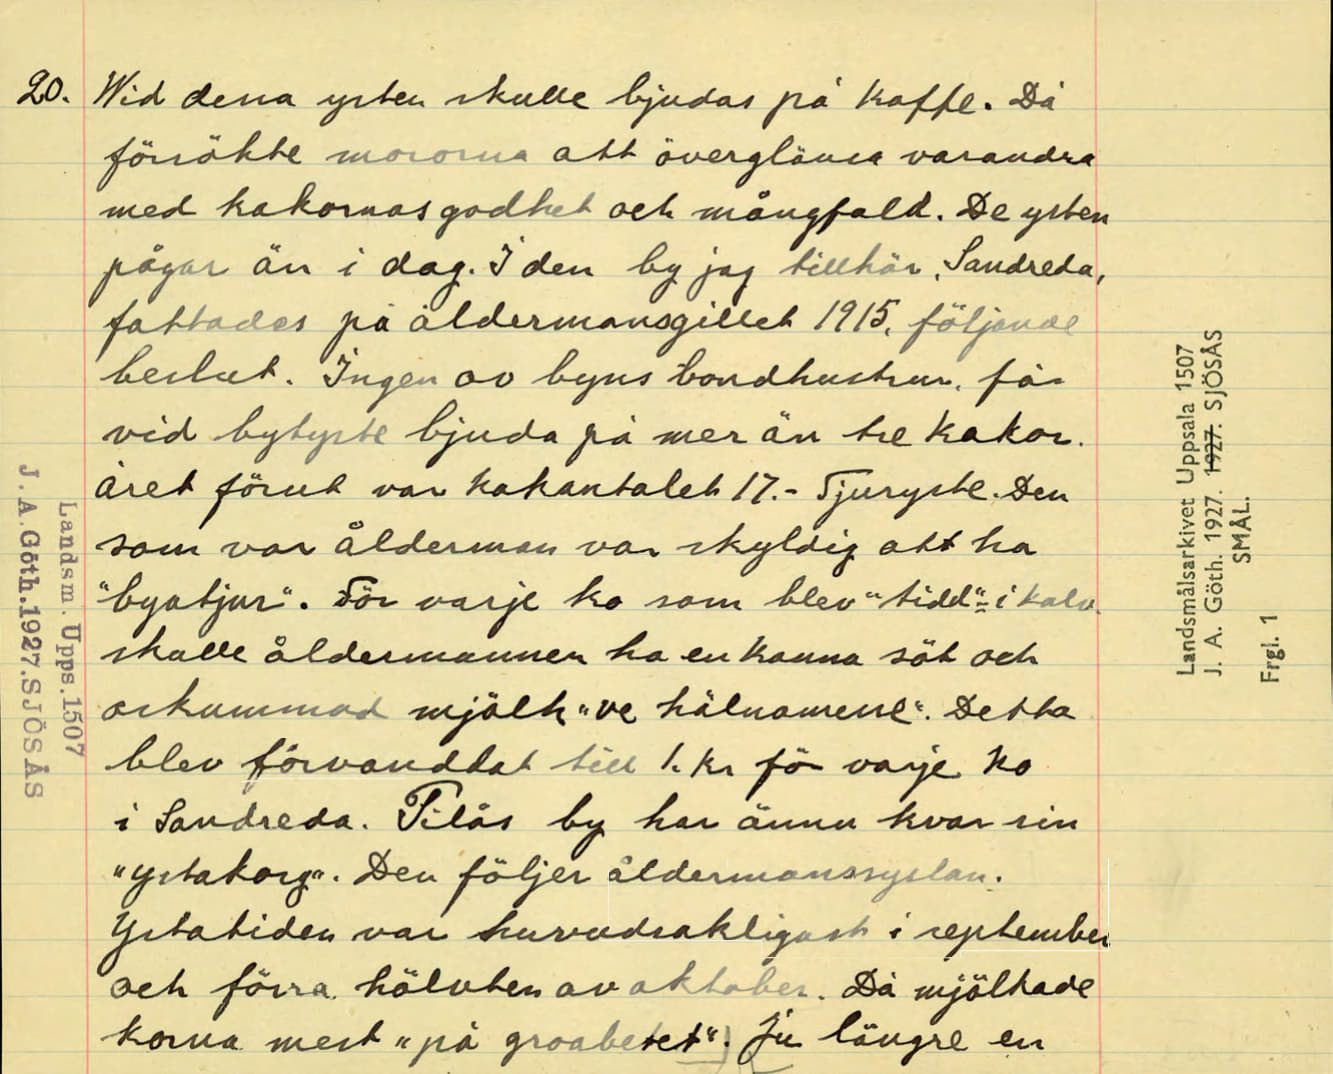 20. Wid dessa ysten skulle bjudas på kaffe. Då
försökte mororna att överglänsa varandra
med kakornas godhet och mångfald. De ysten
pågar än i dag. I den by jag tillhör, Sandreda,
fattades på åldermansgillet 1915, följande
beslut. Ingen av byns bondhustrur, får
vid bytyste bjuda på mer än tre kakor.
Året förut var kakantalet 17.- Tjuryste. Den
som var ålderman var skyldig att ha
"byatjur". För varje ko som blev "tidd" = i kalv
skulle åldermannen ha en kanna söt och
oskummad mjölk "ve hälnamesse". Detta
blev förvandlat till 1. kr för varje ko
i Sandreda. Tilås by har ännu kvar sin
"ystakorg". Den följer åldermanssyslan.
Ystatiden var huvudsakligast i september
och förra hälvten av oktober. Då mjölkade
korna mest "på groabetet". Ju längre en
Landsm. Upps. 1507
J. A. Göth. 1927. SJÖSÅS
Landsmålsarkivet Uppsala 1507
J. A. Göth. 1927. 1927. SJÖSÅS
SMÅL.
Frgl. 1